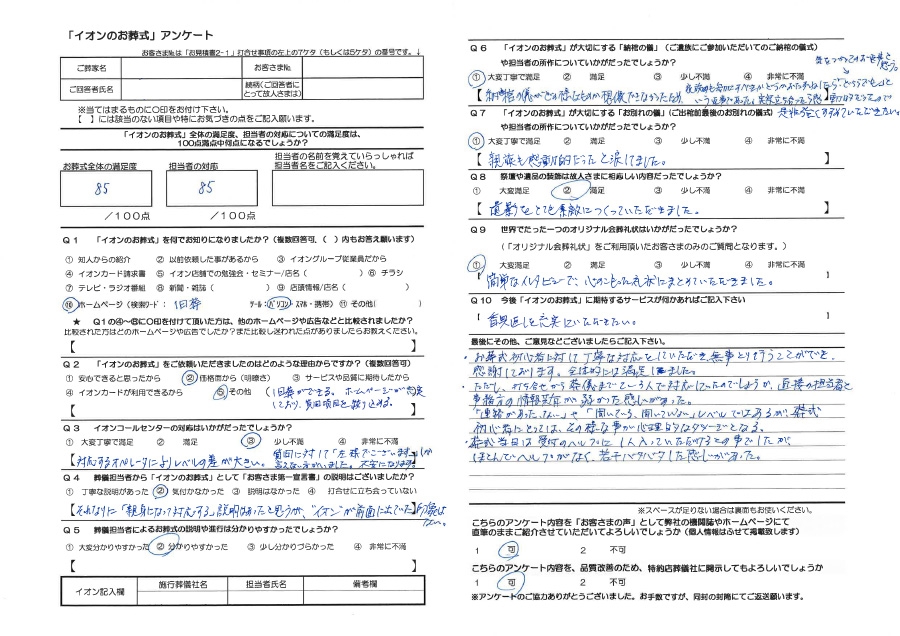 「イオンのお葬式」アンケート
お客さま№は「お見積書2-1」打合せ事項の左上の7ケタ（もしくは5ケタ）の番号です。↓
ご葬家名
お客さま№
ご回答者氏名
続柄（ご回答者にとって故人さまは）
※当てはまるものに○印をお付け下さい。
【　】には該当のない項目や特にお気づきの点をご記入願います。
「イオンのお葬式」全体の満足度、担当者の対応についての満足度は、
100点満点中何点になるでしょうか？
お葬式全体の満足度
担当者の対応
担当者の名前を覚えていらっしゃれば
担当者名をご記入ください。
85
85
／100点
／100点
Q1　「イオンのお葬式」を何でお知りになりましたか？（複数回答可、（　）内もお答え願います）
① 知人からの紹介　② 以前依頼した事があるから　③ イオングループ従業員だから
④ イオンカード請求書　⑤ イオン店舗での勉強会・セミナー/店名（　）⑥ チラシ
⑦ テレビ・ラジオ番組　⑧ 新聞・雑誌（　）⑨ 店頭情報/店名（　）
⑩ ホームページ（検索ワード：1日葬　ツール：パソコン・スマホ・携帯）⑪ その他（　）
★　Q1の④～⑧に○印を付けて頂いた方は、他のホームページや広告などと比較されましたか？
比較された方はどのホームページや広告でしたか？また比較し迷われた点がありましたらお教えください。
【　】
Q2　「イオンのお葬式」をご依頼いただきましたのはどのような理由からですか？（複数回答可）
① 安心できると思ったから　② 価格面から（明瞭さ）　③ サービスや品質に期待したから
④ イオンカードが利用できるから　⑤ その他（1日葬ができる。ホームページが充実
しており、費用項目を絞り込める。
Q3　イオンコールセンターの対応はいかがだったでしょうか？
① 大変丁寧で満足　② 満足　③ 少し不満　④ 非常に不満
【対応するオペレータによりレベルの差が大きい。質問に対して「左様でございます」しか
言えない方がいました。不安になります】
Q4　葬儀担当者から「イオンのお葬式」として「お客さま第一宣言書」の説明はございましたか？
① 丁寧な説明があった　② 気付かなかった　③ 説明はなかった　④ 打合せに立ち会っていない
【それなりに「親身になって対応する」説明はあったと思うが、"イオン"が前面に出ていた】印象はない。
Q5　葬儀担当者によるお葬式の説明や進行は分かりやすかったでしょうか？
① 大変分かりやすかった　② 分かりやすかった　③ 少し分かりづらかった　④ 非常に不満
【　】
イオン記入欄
施行葬儀社名
担当者氏名
備考欄
Q6　「イオンのお葬式」が大切にする「納棺の儀」（ご遺族にご参加いただいてのご納棺の儀式）
や担当者の所作についていかがだったでしょうか？
① 大変丁寧で満足　② 満足　③ 少し不満　④ 非常に不満
Q7　「イオンのお葬式」が大切にする「お別れの儀」（ご出棺前最後のお別れの儀式）
や担当者の所作についていかがだったでしょうか？
① 大変丁寧で満足　② 満足　③ 少し不満　④ 非常に不満
【親族も感動的だったと涙してました。】
Q8　祭壇や遺品の装飾は故人さまに相応しい内容だったでしょうか？
① 大変満足　② 満足　③ 少し不満　④ 非常に不満
【遺影をとても素敵につくっていただきました。】
Q9　世界でたった一つのオリジナル会葬礼状はいかがだったでしょうか？
（「オリジナル会葬礼状」をご利用頂いたお客さまのみのご質問となります。）
① 大変満足　② 満足　③ 少し不満　④ 非常に不満
【簡単なインタビューで、心のこもった礼状にまとめていただきました。】
Q10　今後「イオンのお葬式」に期待するサービスが何かあればご記入下さい
【香典返しを充実していただきたい。】
最後にその他、ご意見などございましたらご記入下さい。
・お葬式初心者に対して丁寧な対応をしていただき、無事とり行うことができ、
感謝しております。全体的には満足しました。
・ただし、打ち合せから葬儀までを1人で対応していたのでしょうが、直接の担当者と
事務方の情報共有が弱かった感じがあった。
「連絡があった、ない」や「聞いている、聞いていない」レベルではあるが、葬式
初心者にとっては、その様な事が心理的なダメージとなる。
葬式当日は受付のヘルプに1人入っていただけるとの事でしたが、
ほとんどヘルプがなく、若干バタバタした感じがあった。
※スペースが足りない場合は裏面もお使いください。
こちらのアンケート内容を「お客さまの声」として弊社の機関誌やホームページにて
直筆のままご紹介させていただいてよろしいでしょうか（個人情報はふせて掲載致します）
1　可　2　不可
こちらのアンケート内容を、品質改善のため、特約店葬儀社に開示してもよろしいでしょうか
1　可　2　不可
※アンケートのご協力ありがとうございました。お手数ですが、同封の封筒にてご返送願います。